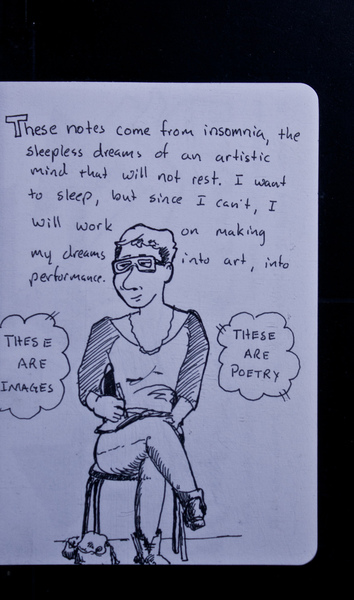 These notes come from insomnia, the
sleepless dreams of an artistic
mind that will not rest. I want
to sleep, but since I can't, I
will work on making
my dreams into art, into
performance.
THESE
ARE
IMAGES
THESE
ARE
POETRY